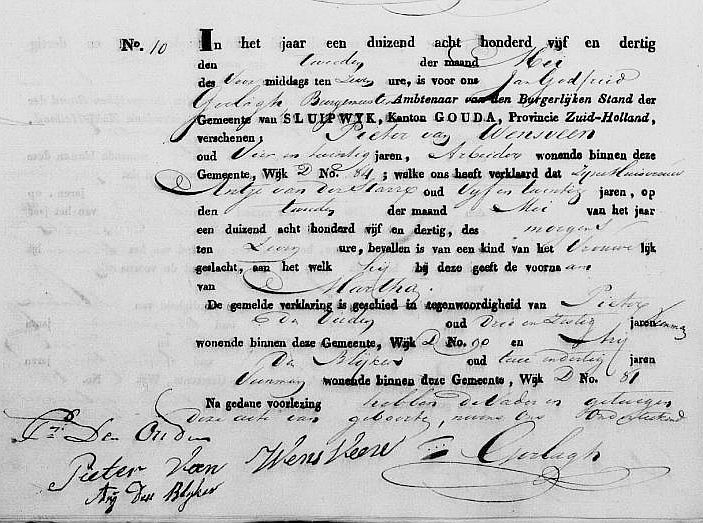 No. 10 In het jaar een duizend acht honderd vijf en dertig
den tweeden der maand Mei
des Voor middags ten Zeven ure, is voor ons Jan Godfried
Gorlagh Burgemeester Ambtenaar van den Burgerlijken Stand der
Gemeente van SLUIPWYK, Kanton GOUDA, Provincie Zuid-Holland,
verschenen; Pieter van Wensveen
oud Vier en twintig jaren, Arbeider wonende binnen deze
Gemeente, Wijk D No. 84; welke ons heeft verklaard dat zijne Huisvrouw
Antje van der Starre oud Vyf en twintig jaren, op
den tweeden der maand Mei van het jaar
een duizend acht honderd vijf en dertig, des morgens
ten Zeven ure, bevallen is van een kind van het Vrouwe lijk
geslacht, aan het welk hij bij deze geeft de voorna am
van Martha.
De gemelde verklaring is geschied in tegenwoordigheid van Pieter
Den Ouden oud Drie en Zestig jaren
wonende binnen deze Gemeente, Wijk D No. 90 en Arij
Den Blijker oud twee en dertig jaren
wonende binnen deze Gemeente, Wijk D No. 81
Na gedane voorlezing hebben de Vader en getuigen
Deze acte van geboorte, nevens Ons Onderteekend
Pr. Den Ouden
Pieter Van Wens Veen Gorlagh
Arij Den Blyker